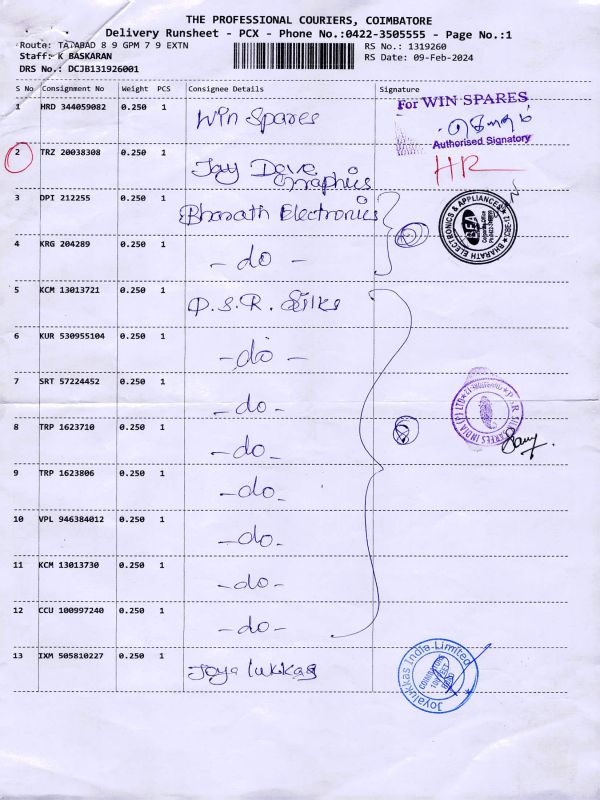 THE PROFESSIONAL COURIERS, COIMBATORE
Delivery Runsheet - PCX - Phone No.:0422-3505555 - Page No.:1
Route: TATABAD 8 9 GPM 7 9 EXTN RS No.: 1319260
Staff: K BASKARAN RS Date: 09-Feb-2024
DRS No.: DCJB131926001
S No Consignment No Weight PCS Consignee Details Signature
1 HRD 344059082 0.250 1 Win Spares
For WIN SPARES
Authorised Signatory
2 TRZ 20038308 0.250 1 Jay Deve Graphics HR
3 DPT 212255 0.250 1 Bharath Electronics
BHARATH ELECTRONICS & APPLIANCES
BEA
4 KRG 204289 0.250 1 - do -
5 KCM 13013721 0.250 1 P.S.R. Silks
6 KUR 530955104 0.250 1 - do -
7 SRT 57224452 0.250 1 - do -
8 TRP 1623710 0.250 1 - do -
9 TRP 1623806 0.250 1 - do -
10 VPL 946384012 0.250 1 - do -
11 KCM 13013730 0.250 1 - do -
12 CCU 100997240 0.250 1 - do -
13 IXM 505810227 0.250 1 Joya lukkas
Joyalukkas India Limited